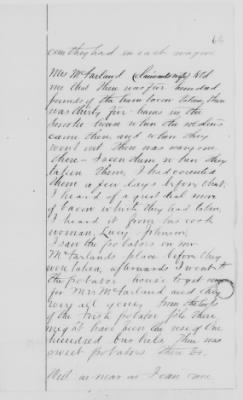 can they had in each wagon
Mrs McFarland (Claimants wife) told
me that there was five hundred
pounds of the bacon taken, there
was thirty five hams in the
smoke house when the soldiers
came there and when they
went out there was nary one
there - I seen them when they
taken them, I had counted
them a few days before that.
I heard of a great deal more
of bacon which they had taken,
I heard it from his cook
woman, Lucy Johnson,
I saw the potatoes on Mr
McFarlands place before they
were taken, afterwards I went to
the potatoe house to get some
for Mrs McFarland and they
were all gone, from the looks
of the fresh potatoe pile there
might have been one
hundred bushels there was
sweet potatoes there to.
And as near as I can